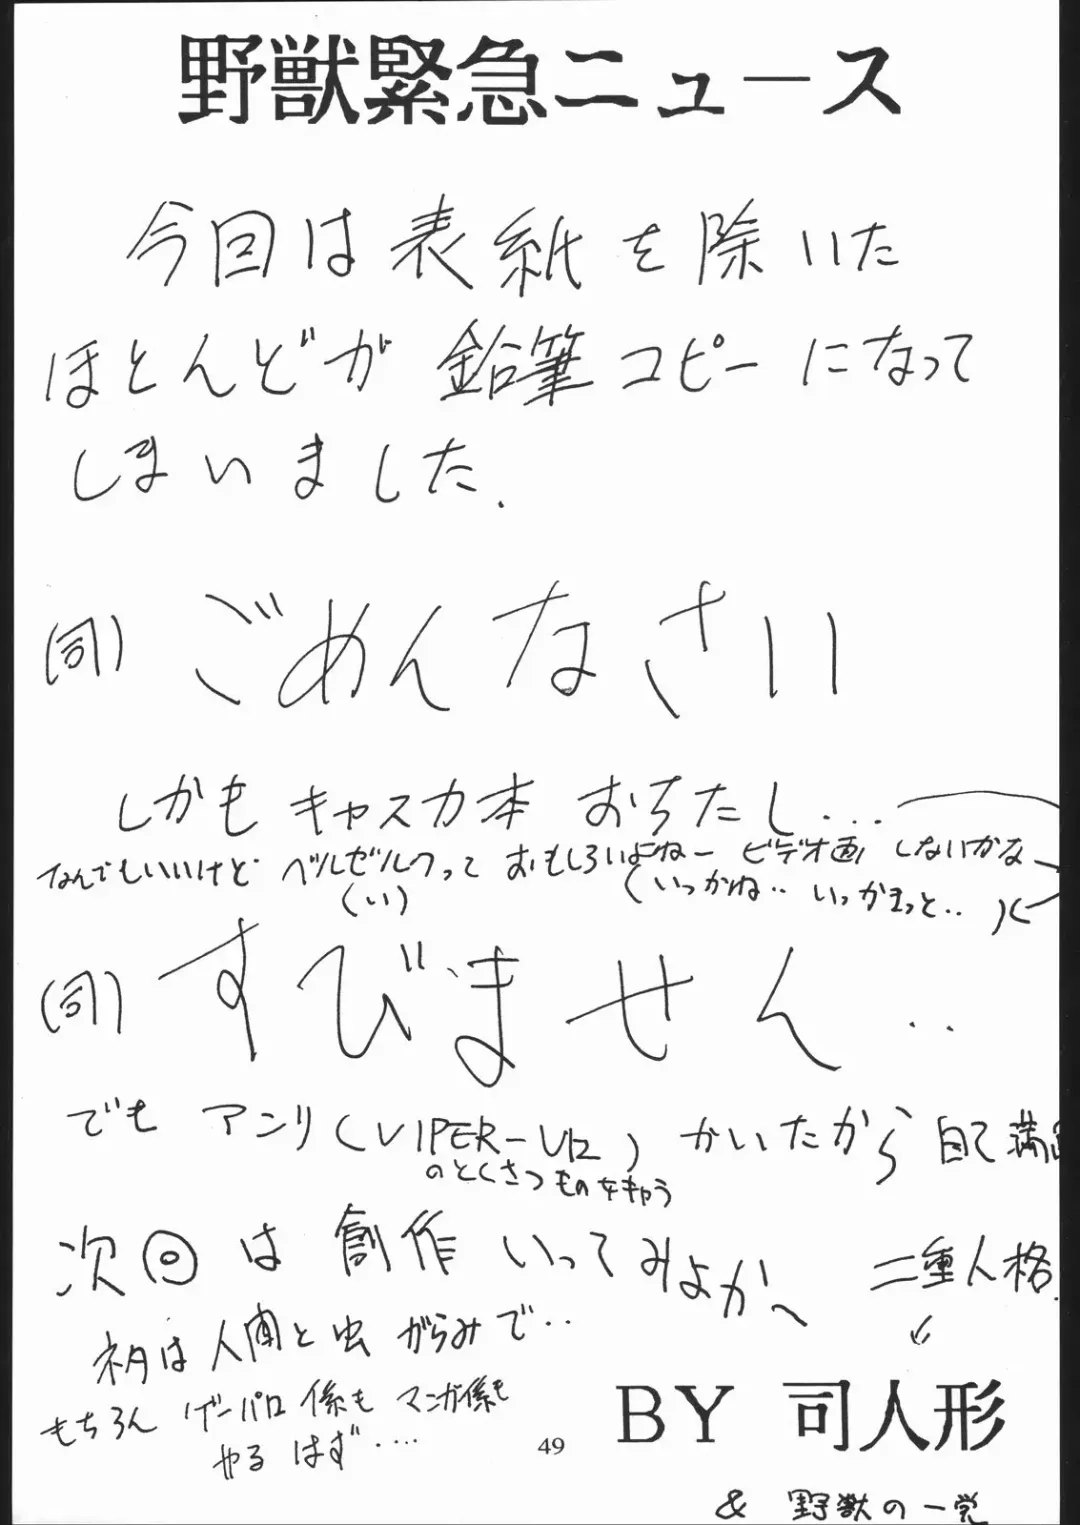 野獣緊急ニュース
今回は表紙を除いた
ほとんどが鉛筆コピーになって
しまいました.
(司) ごめんなさい
しかもキャスカ本おちたし...
なんでもいいけどベルゼルクっておもしろいよねービデオ画しないかな
(い) (いつかね.. いつかきっと.. )
(司) すびません..
でもアンリ(VIPER-V12)かいたから自己満足
のとくさつものをキャラ
次回は創作いってみよか〜 二重人格.
ネタは人間と虫がらみで..
もちろんゲーパロ係もマンガ係も
やるはず....
BY 司人形
49
& 野獣の一党